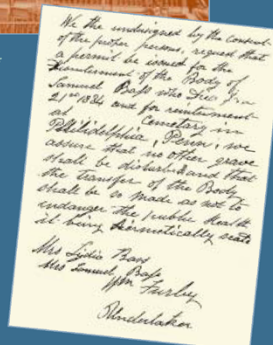 We the undersigned by the consent
of the proper persons, request that
a permit be issued for the
Disinterment of the Body of
Samuel Bass who died Jan
21st 1884 and for reinterment
at Cemetary in
Philidelphia, Penn, we
assure that no other grave
shall be disturbed and that
the transfer of the Body
shall be so made as not to
endanger the public health
it being Hermetically seald
Mrs Lidia Bass
Mrs Samuel Bass
Wm Furley
Undertaker